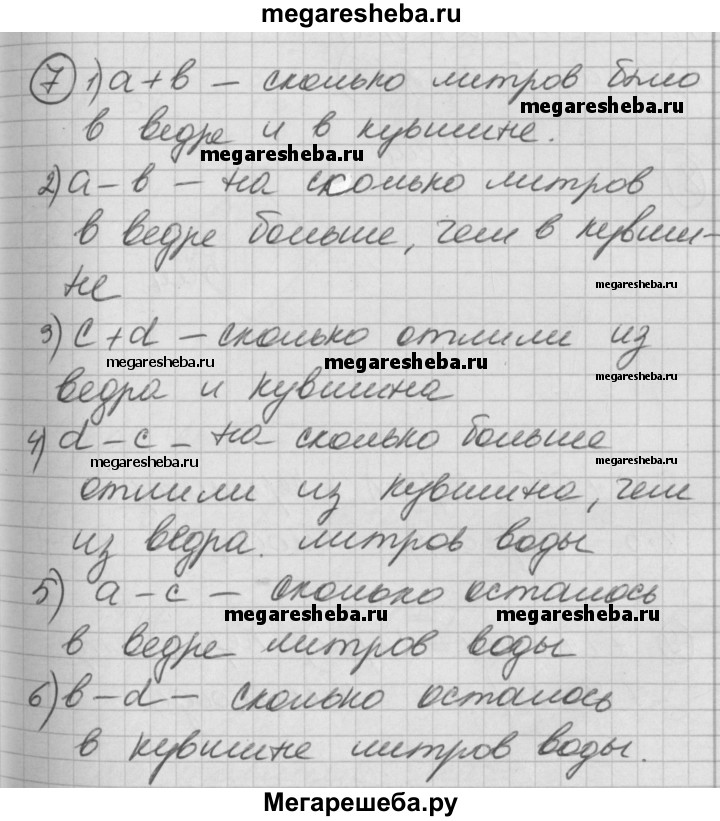 megaresheba.ru
7 1) a+b – сколько литров было
megaresheba.ru
в ведре и в кувшине.
megaresheba.ru
2) a-b – на сколько литров
в ведре больше, чем в кувши-
не
megaresheba.ru
3) c+d – сколько отлили из
megaresheba.ru megaresheba.ru megaresheba.ru
ведра и кувшина
4) d-c – на сколько больше
megaresheba.ru megaresheba.ru
отлили из кувшина, чем
из ведра литров воды
5) a-c – сколько осталось
megaresheba.ru megaresheba.ru
в ведре литров воды
6) b-d – сколько осталось
в кувшине литров воды.
Мегарешеба.ру